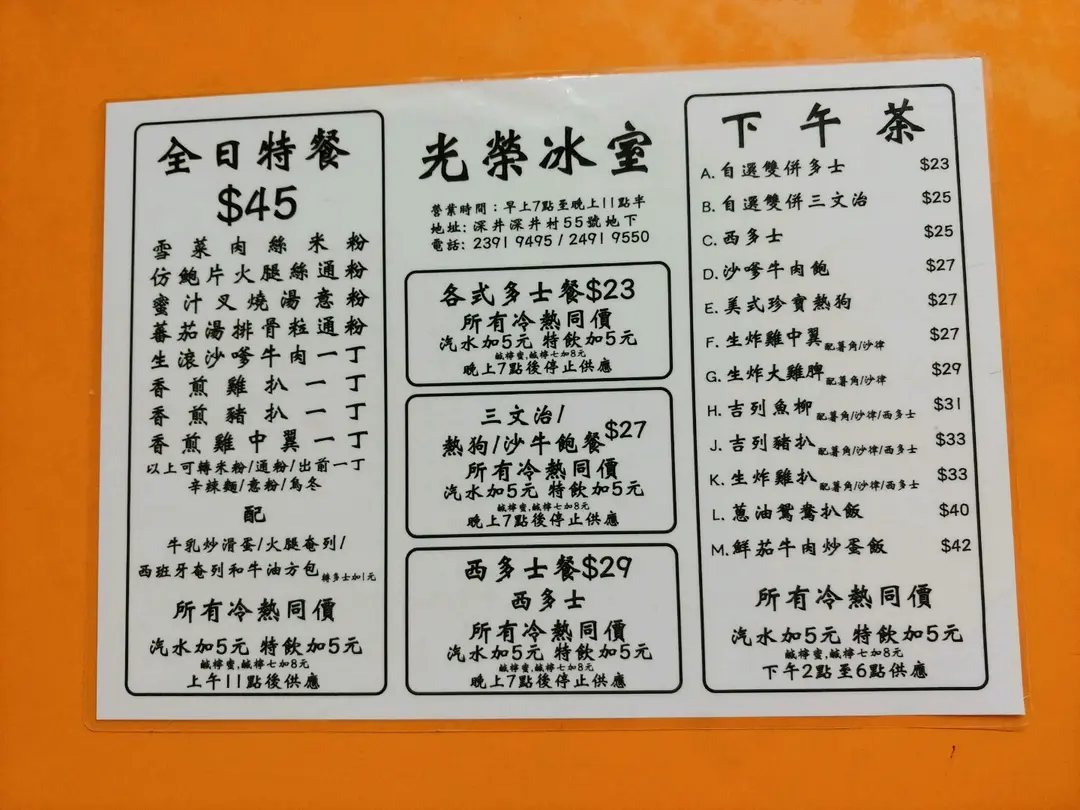 全日特餐
$45
雪菜肉絲米粉
仿鮑片火腿絲通粉
蜜汁叉燒湯意粉
蕃茄湯排骨粒通粉
生滾沙嗲牛肉一丁
香煎雞扒一丁
香煎豬扒一丁
香煎雞中翼一丁
以上可轉米粉/通粉/出前一丁
辛辣麵/意粉/烏冬
配
牛乳炒滑蛋/火腿奄列/
西班牙奄列和牛油方包轉多士加1元
所有冷熱同價
汽水加5元 特飲加5元
鹹檸蜜,鹹檸七加8元
上午11點後供應
光榮冰室
營業時間：早上7點至晚上11點半
地址: 深井深井村55號地下
電話: 2391 9495 / 2491 9550
各式多士餐$23
所有冷熱同價
汽水加5元 特飲加5元
鹹檸蜜,鹹檸七加8元
晚上7點後停止供應
三文治/
熱狗/沙牛飽餐$27
所有冷熱同價
汽水加5元 特飲加5元
鹹檸蜜,鹹檸七加8元
晚上7點後停止供應
西多士餐$29
西多士
所有冷熱同價
汽水加5元 特飲加5元
鹹檸蜜,鹹檸七加8元
晚上7點後停止供應
下午茶
A. 自選雙併多士 $23
B. 自選雙併三文治 $25
C. 西多士 $25
D. 沙嗲牛肉飽 $27
E. 美式珍寶熱狗 $27
F. 生炸雞中翼配薯角/沙律 $27
G. 生炸大雞脾配薯角/沙律 $29
H. 吉列魚柳配薯角/沙律/西多士 $31
J. 吉列豬扒配薯角/沙律/西多士 $33
K. 生炸雞扒配薯角/沙律/西多士 $33
L. 蔥油鴛鴦扒飯 $40
M. 鮮茄牛肉炒蛋飯 $42
所有冷熱同價
汽水加5元 特飲加5元
鹹檸蜜,鹹檸七加8元
下午2點至6點供應